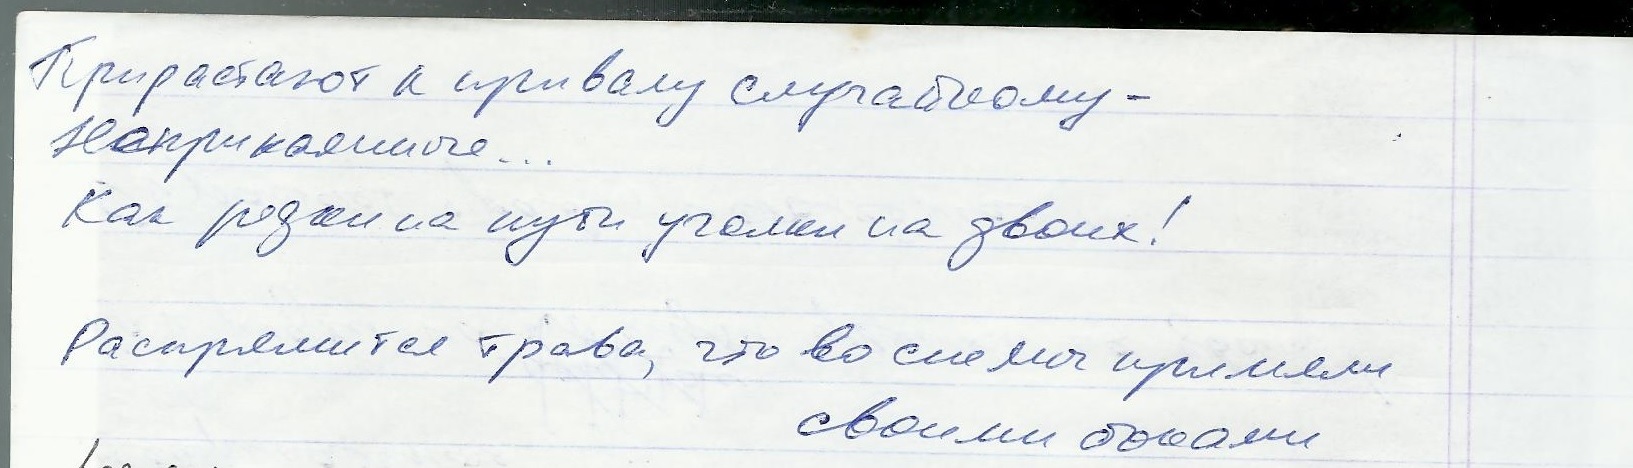 Прирастают к привалу случайному -
Неприкаянные...
Как редки на пути уголки на двоих!
Распрямится трава, что во сне мы примяли
своими боками